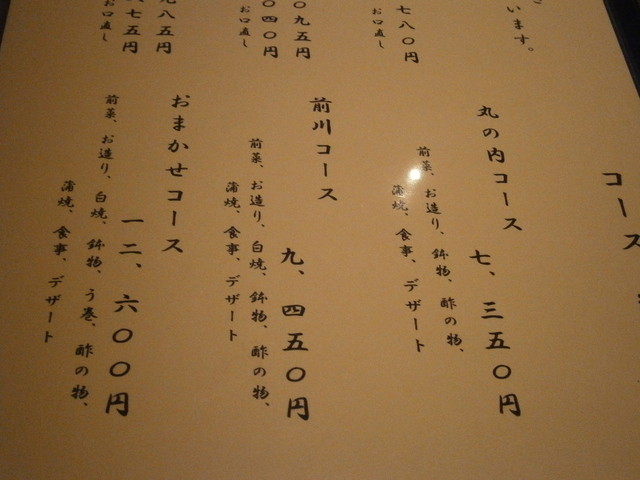 います。
七八〇円
お口直し
〇九五円
〇四〇円
お口直し
九八五円
八七五円
お口直し
コース
丸の内コース
七、三五〇円
前菜、お造り、鉢物、酢の物、
蒲焼、食事、デザート
前川コース
九、四五〇円
前菜、お造り、白焼、鉢物、酢の物、
蒲焼、食事、デザート
おまかせコース
一二、六〇〇円
前菜、お造り、白焼、鉢物、う巻、酢の物、
蒲焼、食事、デザート